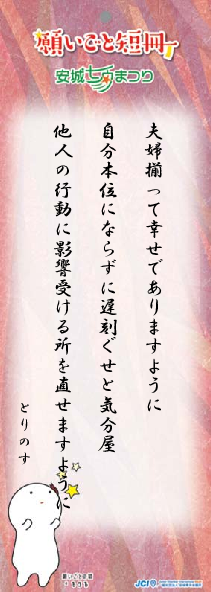 願いごと短冊
安城七夕まつり
夫婦揃って幸せでありますように
自分本位にならずに遅刻ぐせと気分屋
他人の行動に影響受ける所を直せますように
とりのす
願いごと短冊
JCI